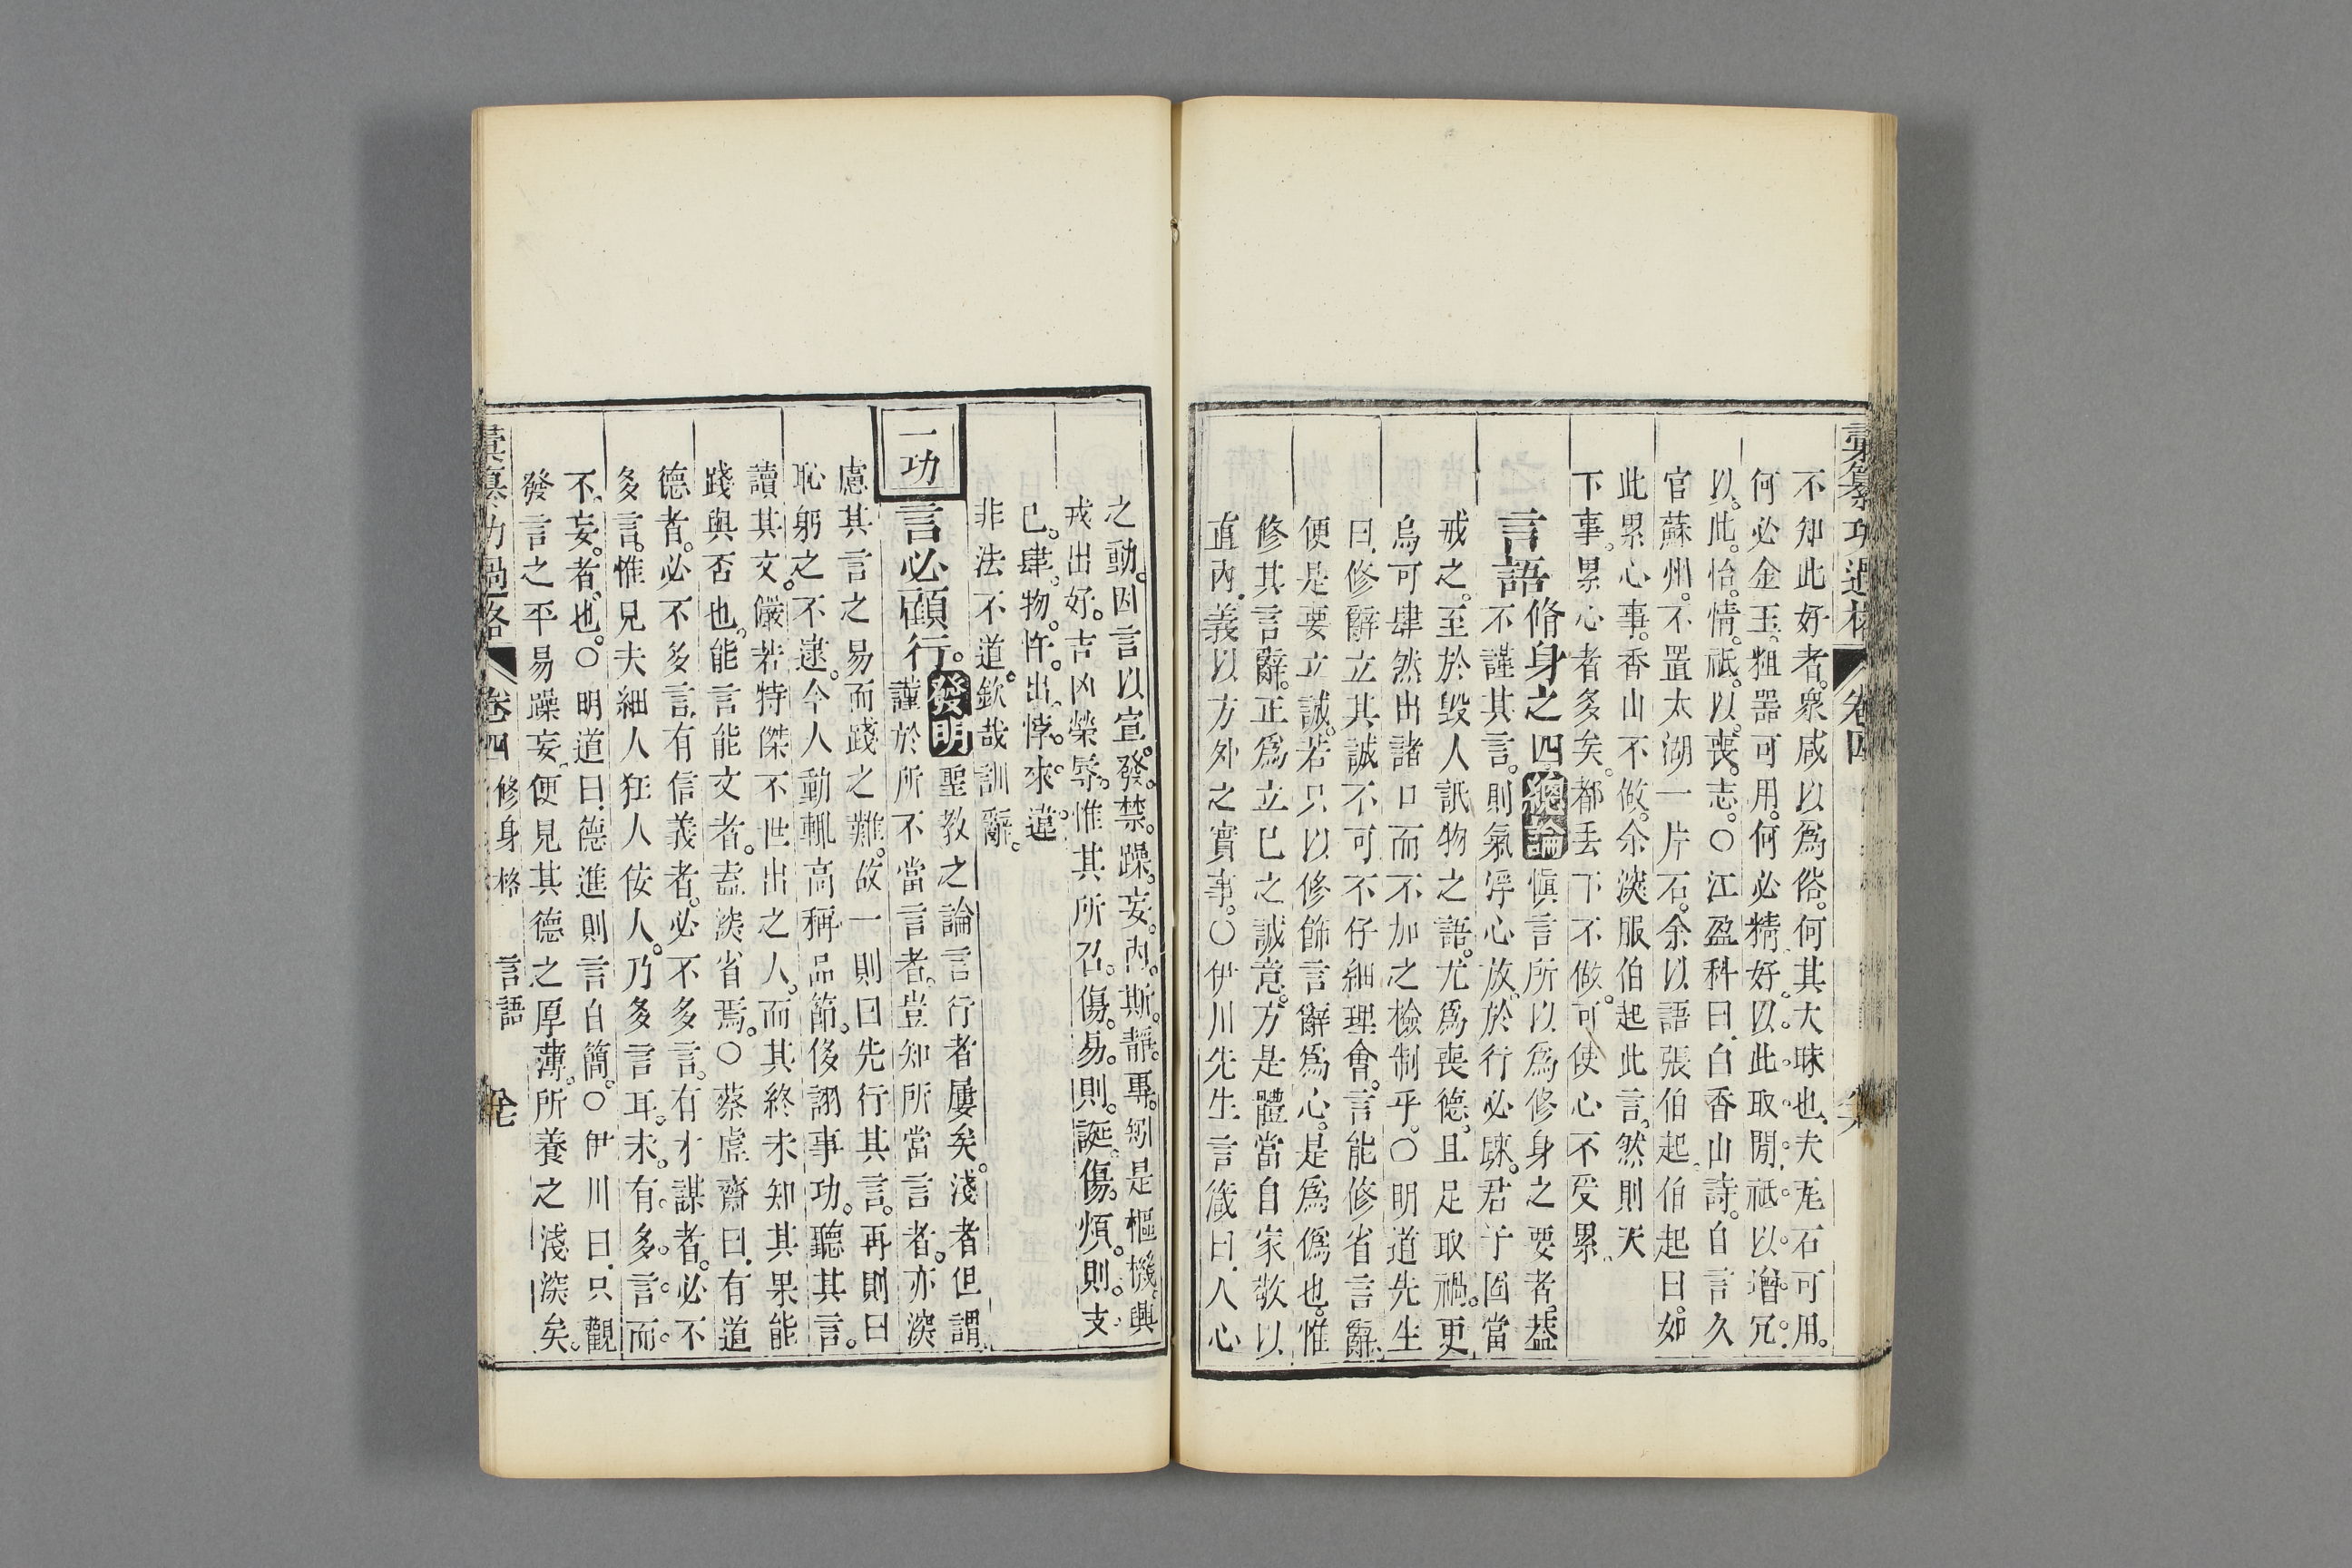 彙纂功過格 卷四
不知此好者。衆咸以爲俗。何其大昧也。夫瓦石可用。
何必金玉。粗器可用。何必精好。以此取閒。祗以增冗。
以此怡情。祗以喪志。○江盈科曰。白香山詩。自言久
官蘇州。不置太湖一片石。余以語張伯起。伯起曰。如
此累心事。香山不做。余深服伯起此言。然則天
下事。累心者多矣。都丟下不做。可使心不受累。
言語 脩身之四 總論 愼言所以爲修身之要者。葢
不謹其言。則氣浮心放。於行必疎。君子固當
戒之。至於毀人訛物之語。尤爲喪德。且足取禍。更
烏可肆然出諸口而不加之檢制乎。○明道先生
曰。修辭立其誠。不可不仔細理會。言能修省言辭。
便是要立誠。若只以修飾言辭爲心。是爲僞也。惟
修其言辭。正爲立已之誠意。方是體當自家敬以
直內。義以方外之實事。○伊川先生言箴曰。人心
之動。因言以宣。發禁躁妄。內斯靜專。矧是樞機。興
戎出好。吉凶榮辱。惟其所召。傷易則誕。傷煩則支。
已肆物忤。出悖來違。
非法不道。欽哉訓辭。
一功 言必顧行。發明 聖教之論言行者屢矣。淺者但謂
謹於所不當言者。豈知所當言者。亦深
慮其言之易而踐之難。故一則曰先行其言。再則曰
恥躬之不逮。今人動輒高稱品節。侈謭事功。聽其言。
讀其文。儼若特傑不世出之人。而其終未知其果能
踐與否也。能言能文者。盍深省焉。○蔡虛齋曰。有道
德者。必不多言。有信義者。必不多言。有才謀者。必不
多言。惟見夫細人狂人佞人。乃多言耳。未有多言而
不妄者也。○明道曰。德進則言自簡。○伊川曰。只觀
發言之平易躁妄。便見其德之厚薄。所養之淺深矣。
彙纂功過格 卷四 修身格 言語